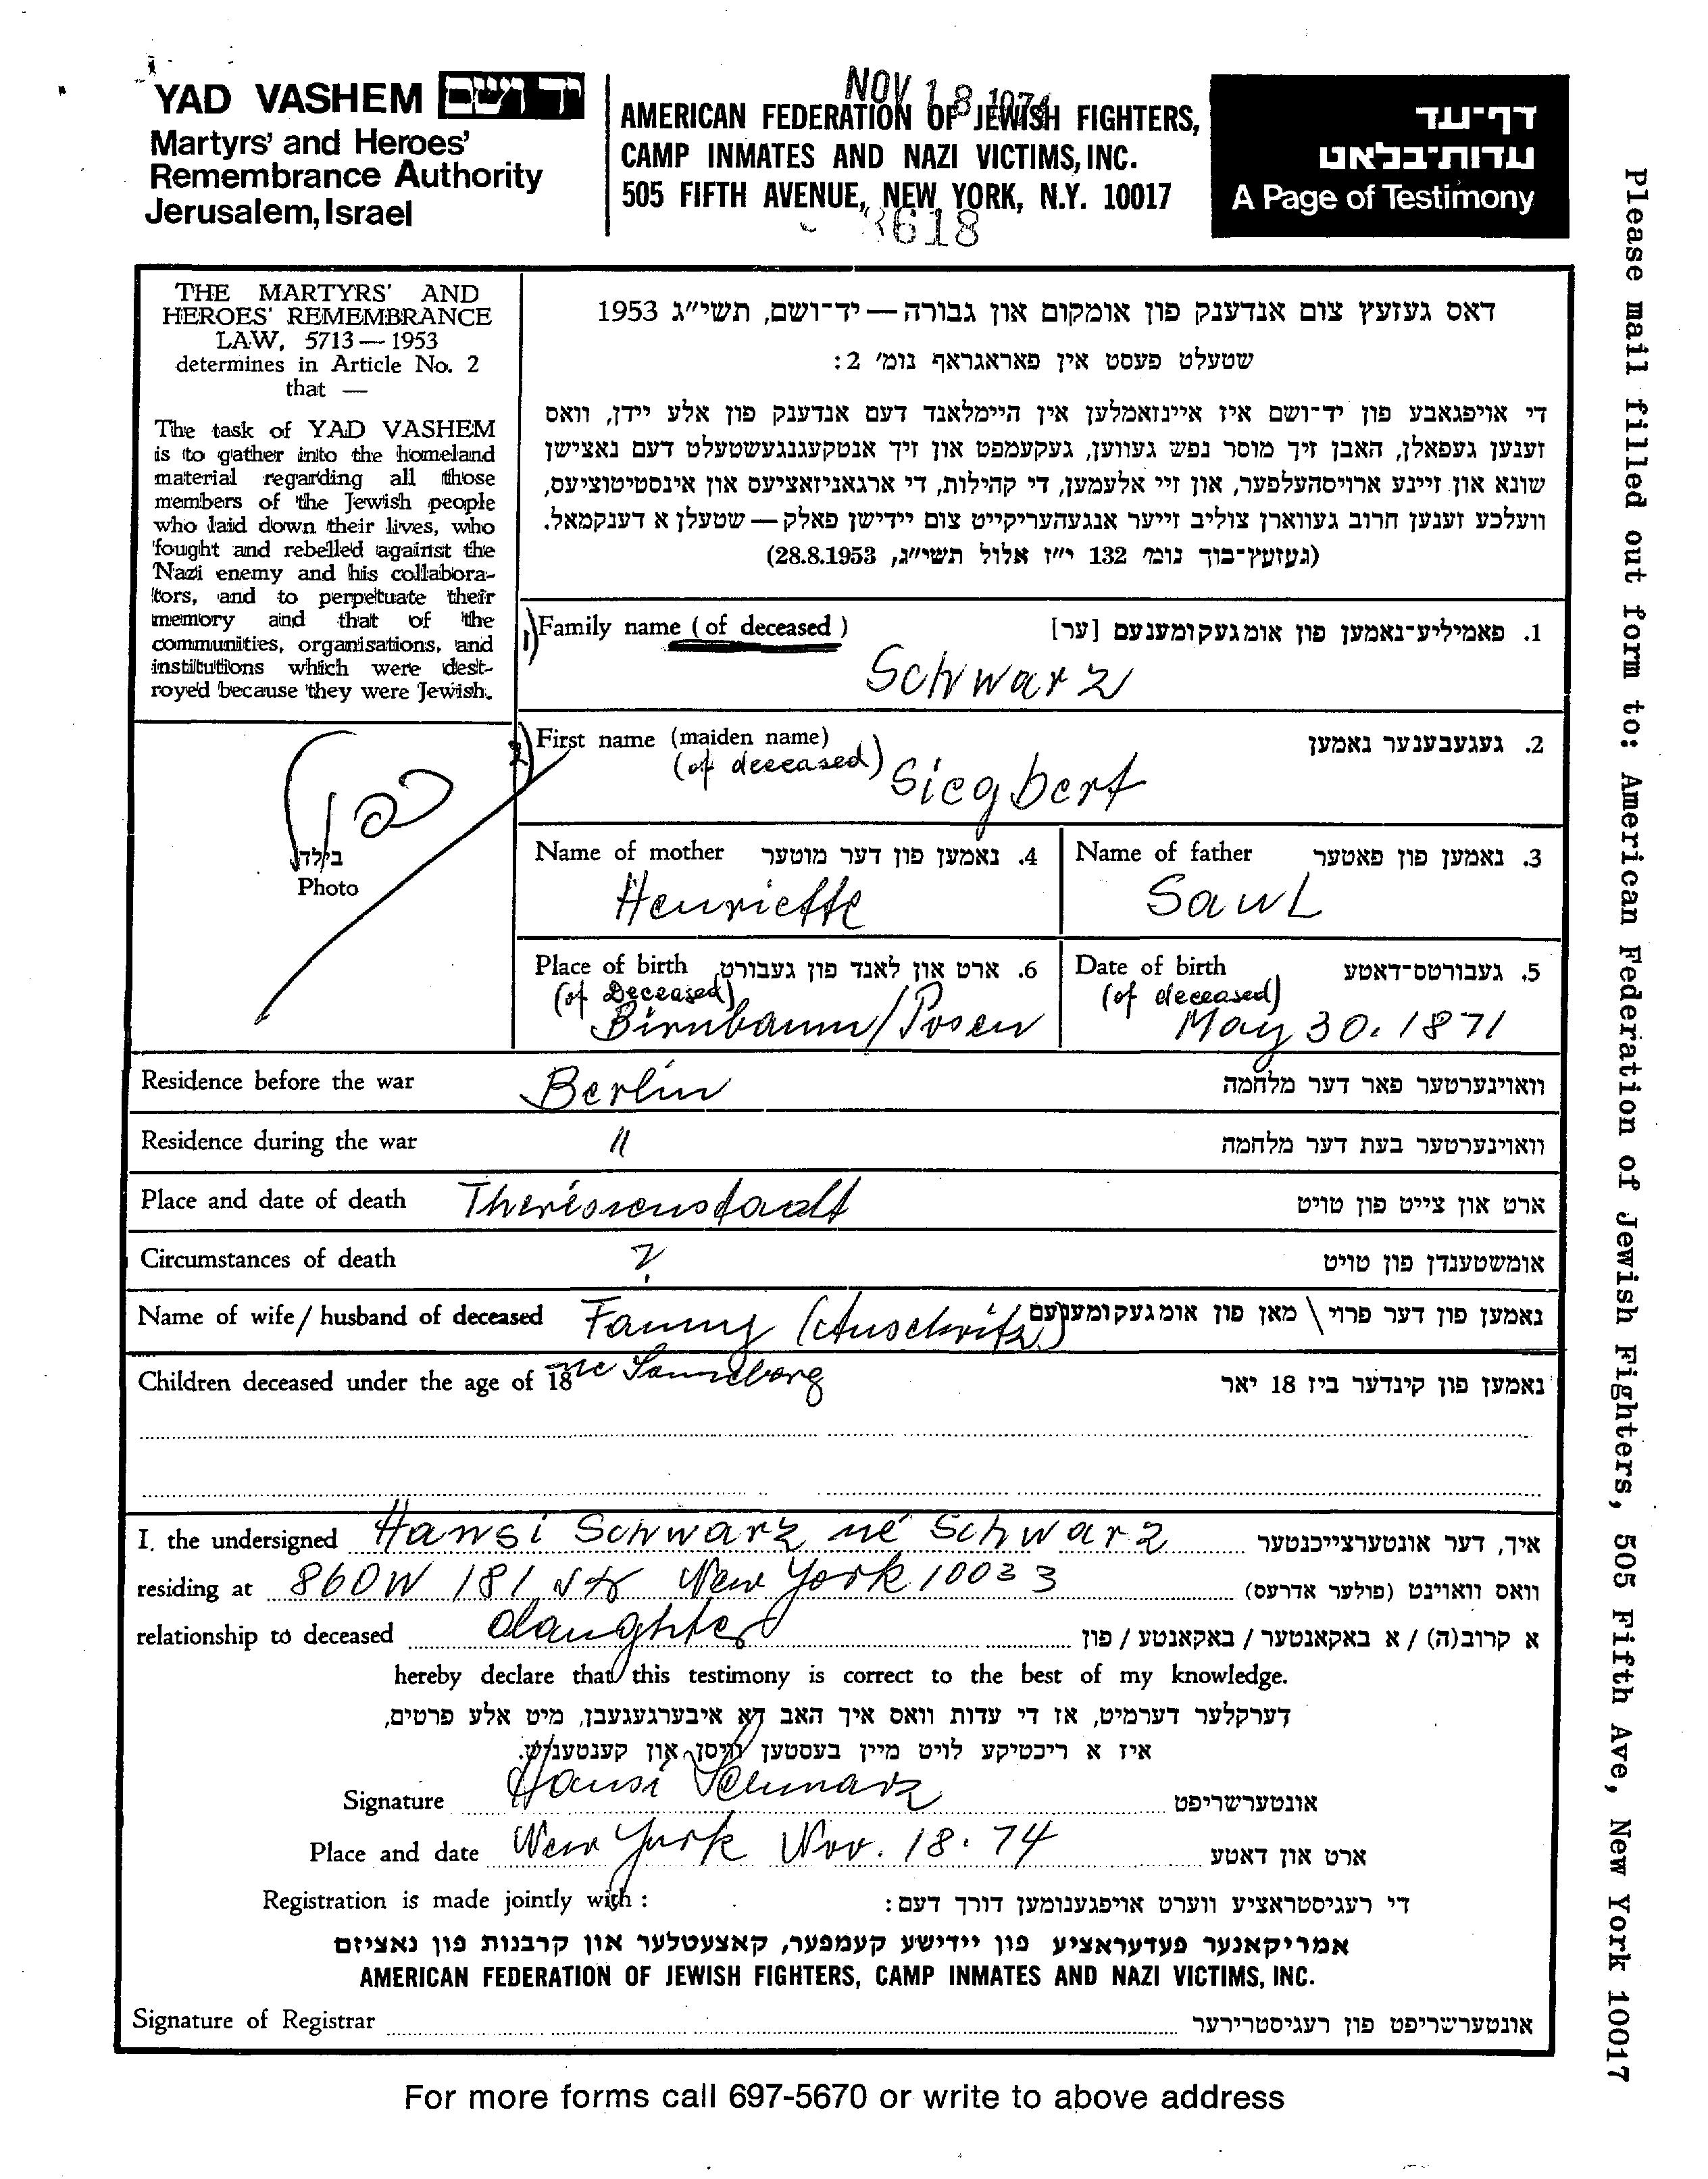 YAD VASHEM יד ושם
Martyrs' and Heroes'
Remembrance Authority
Jerusalem, Israel
NOV 18 1974
AMERICAN FEDERATION OF JEWISH FIGHTERS,
CAMP INMATES AND NAZI VICTIMS, INC.
505 FIFTH AVENUE, NEW YORK, N.Y. 10017
3618
דף־עד
עדות־בלאט
A Page of Testimony
Please mail filled out form to: American Federation of Jewish Fighters, 505 Fifth Ave, New York 10017
THE MARTYRS' AND
HEROES' REMEMBRANCE
LAW, 5713 — 1953
determines in Article No. 2
that —
The task of YAD VASHEM
is to gather into the homeland
material regarding all those
members of the Jewish people
who laid down their lives, who
fought and rebelled against the
Nazi enemy and his collabora-
tors, and to perpetuate their
memory and that of the
communities, organisations, and
institutions which were dest-
royed because they were Jewish.
דאס געזעץ צום אנדענק פון אומקום און גבורה — יד־ושם, תשי״ג 1953
שטעלט פעסט אין פאראגראף נומ׳ 2:
די אויפגאבע פון יד־ושם איז איינזאמלען אין היימלאנד דעם אנדענק פון אלע יידן, וואס
זענען געפאלן, האבן זיך מוסר נפש געווען, געקעמפט און זיך אנטקעגנגעשטעלט דעם נאצישן
שונא און זיינע ארויסהעלפער, און זיי אלעמען, די קהילות, די ארגאניזאציעס און אינסטיטוציעס,
וועלכע זענען חרוב געווארן צוליב זייער אנגעהעריקייט צום יידישן פאלק — שטעלן א דענקמאל.
(געזעץ־בוך נומ׳ 132 י״ז אלול תשי״ג, 28.8.1953)
1) Family name (of deceased) 1. פאמיליע־נאמען פון אומגעקומענעם [ער]
Schwarz
2) First name (maiden name) 2. געגעבענער נאמען
(of deceased) Siegbert
בילד
Photo
Name of mother 4. נאמען פון דער מוטער
Henriette
Name of father 3. נאמען פון פאטער
Saul
Place of birth 6. ארט און לאנד פון געבורט
(of Deceased)
Birnbaum/Posen
Date of birth 5. געבורטס־דאטע
(of deceased)
May 30. 1871
Residence before the war Berlin וואוינערטער פאר דער מלחמה
Residence during the war " וואוינערטער בעת דער מלחמה
Place and date of death Theresienstadt ארט און צייט פון טויט
Circumstances of death ? אומשטענדן פון טויט
Name of wife / husband of deceased Fanny (Auschwitz) נאמען פון דער פרוי \ מאן פון אומגעקומענעם
Children deceased under the age of 18 נאמען פון קינדער ביז 18 יאר
I, the undersigned Hansi Schwarz né Schwarz איך, דער אונטערצייכנטער
residing at 860 W 181 Str New York 10033 וואס וואוינט (פולער אדרעס)
relationship to deceased daughter א קרוב(ה) / א באקאנטער / באקאנטע / פון
hereby declare that this testimony is correct to the best of my knowledge.
דערקלער דערמיט, אז די עדות וואס איך האב דא איבערגעגעבן, מיט אלע פרטים,
איז א ריכטיקע לויט מיין בעסטען וויסן און קענטעניש.
Signature Hansi Schwarz אונטערשריפט
Place and date New York Nov. 18. 74 ארט און דאטע
Registration is made jointly with: די רעגיסטראציע ווערט אויפגענומען דורך דעם:
אמריקאנער פעדעראציע פון יידישע קעמפער, קאצעטלער און קרבנות פון נאציזם
AMERICAN FEDERATION OF JEWISH FIGHTERS, CAMP INMATES AND NAZI VICTIMS, INC.
Signature of Registrar אונטערשריפט פון רעגיסטרירער
For more forms call 697-5670 or write to above address